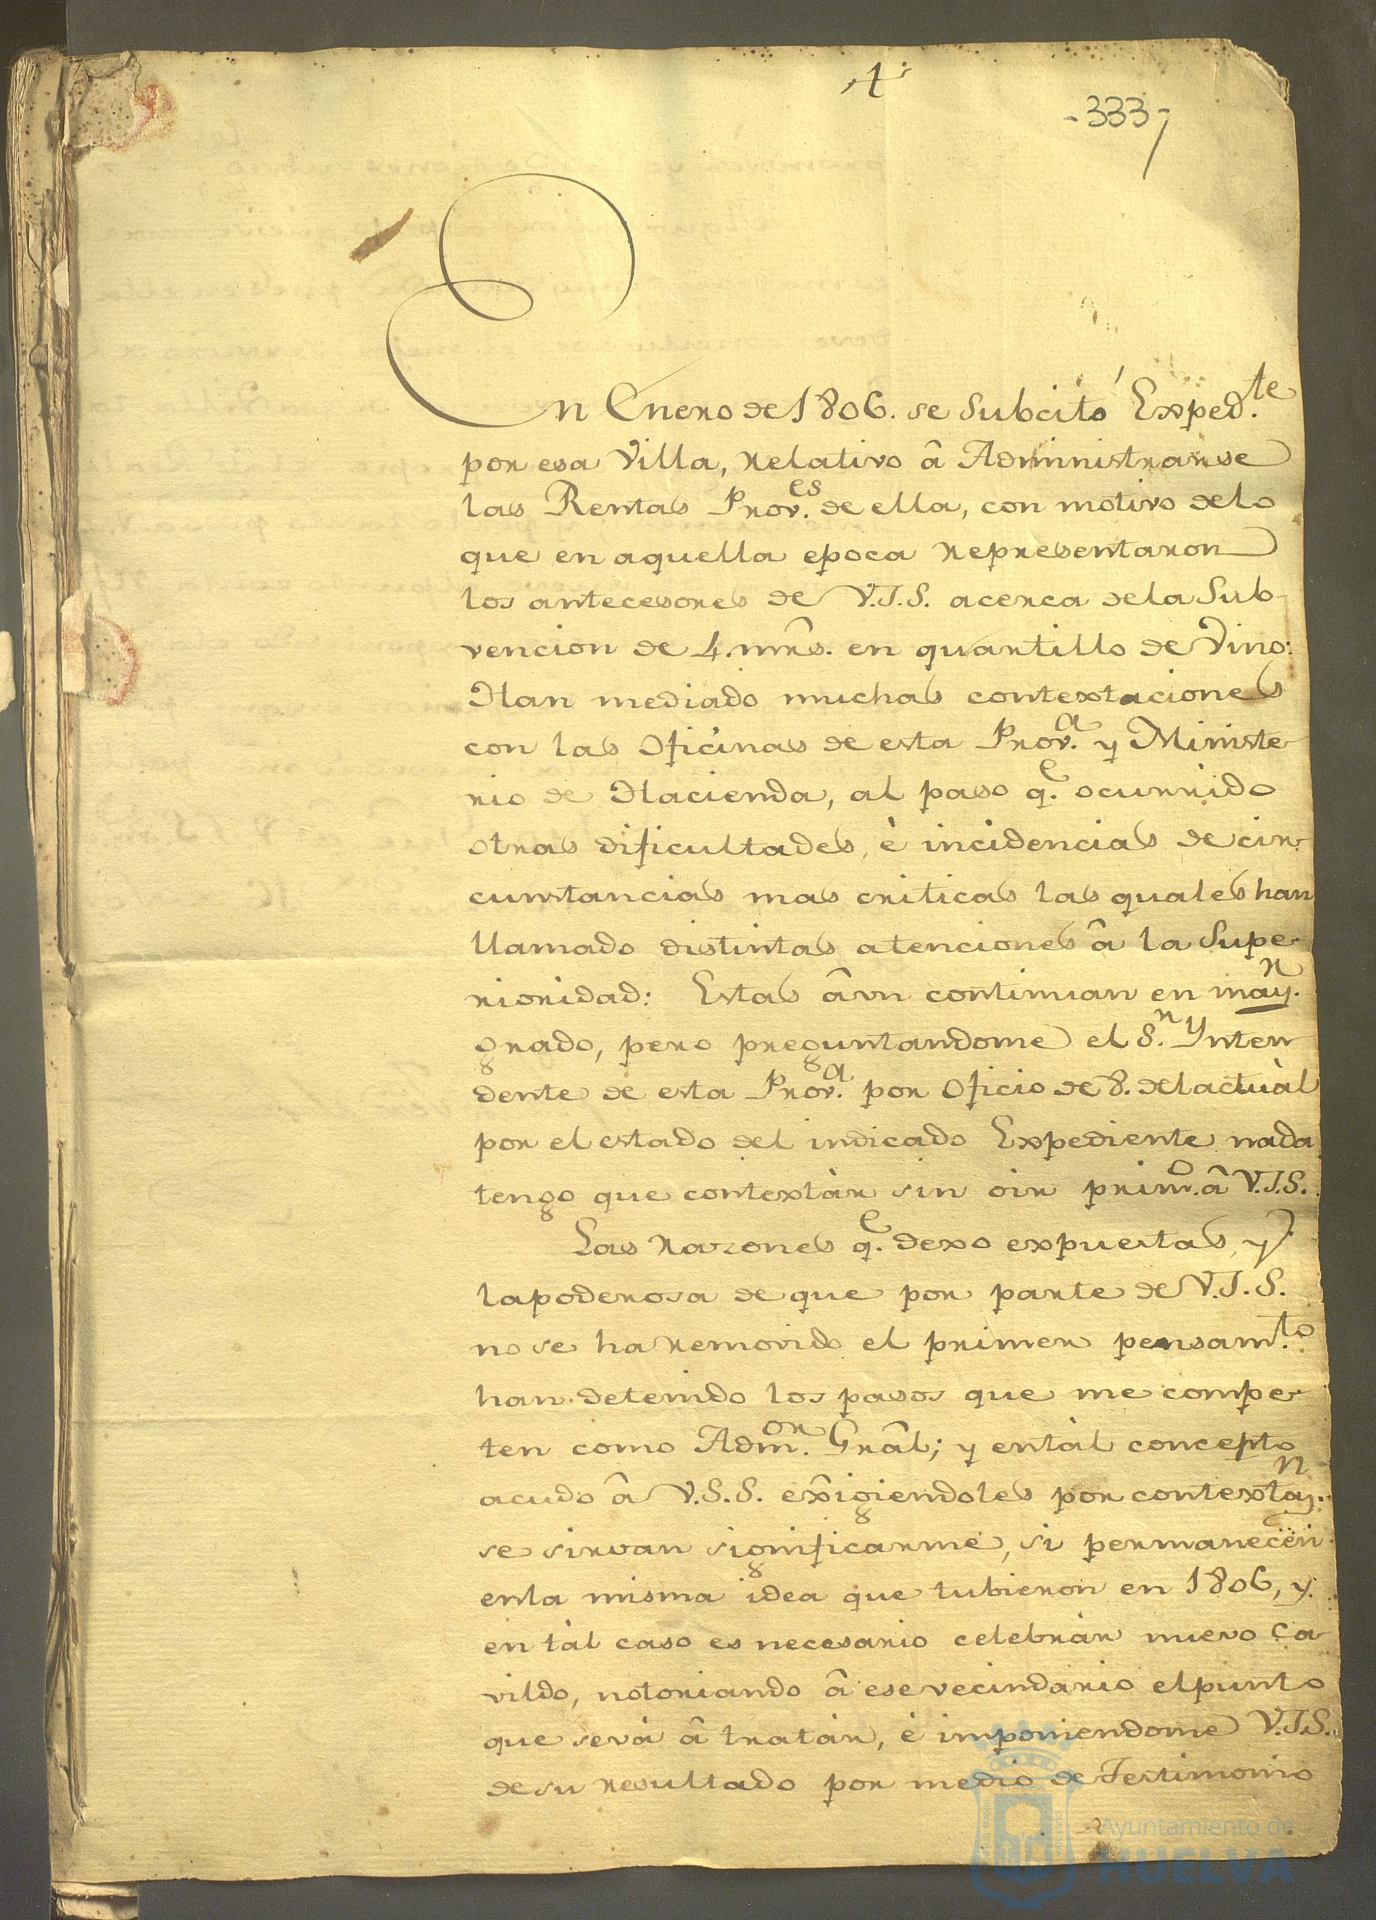 -333-
En Enero de 1806. se Subcitó Exped.te
por esa Villa, relativo â Administrarse
las Rentas Prov.es de ella, con motivo delo
que en aquella epoca representaron
los antecesores de V.I.S. acerca dela Sub-
vencion de 4. mrs. en quartillo de Vino:
Han mediado muchas contextaciones
con las Oficinas de esta Prov.a y Ministe-
rio de Hacienda, al paso q.e ocurrido
otras dificultades, è incidencias de cir-
cunstancias mas criticas las quales han
llamado distintas atenciones â la Supe-
rioridad: Estas âun continuan en may.r
grado, pero preguntandome el S.r Ynten
dente de esta Prov.a por Oficio de 8. del actuàl
por el estado del indicado Expediente nada
tengo que contextàr sin oir prim.o â V.I.S.
Las razones q.e dexo expuestas, y
lapoderosa de que por parte de V.I.S.
no se ha removido el primer pensam.to
han detenido los pasos que me compe-
ten como Adm.or Grâl; y entàl concepto
acudo â V.S.S. exîgiendoles por contextaz.n
se sirvan significarme, si permanecen
enla misma idea que tubieron en 1806, y.
en tàl caso es necesario celebràr nuevo Ca-
vildo, notoriando â ese vecindario elpunto
que se và â tratàr, è imponiendome V.I.S.
de su resultado por medio de Testimonio
Ayuntamiento de
HUELVA